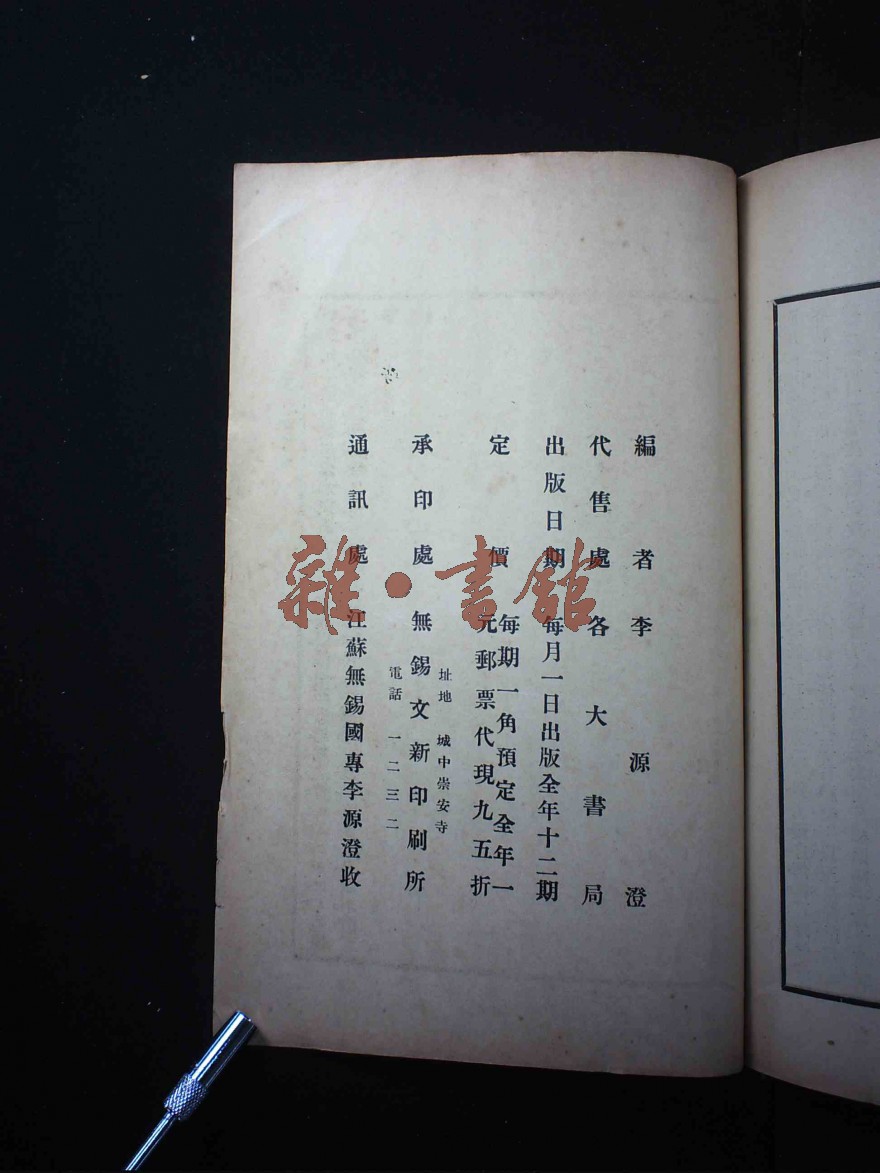 編者李源澄
代售處各大書局
出版日期每月一日出版全年十二期
定價每期一角預定全年一
元郵票代現九五折
承印處無錫文新印刷所
址地城中崇安寺
電話一二三二
通訊處江蘇無錫國專李源澄收
雜·書館